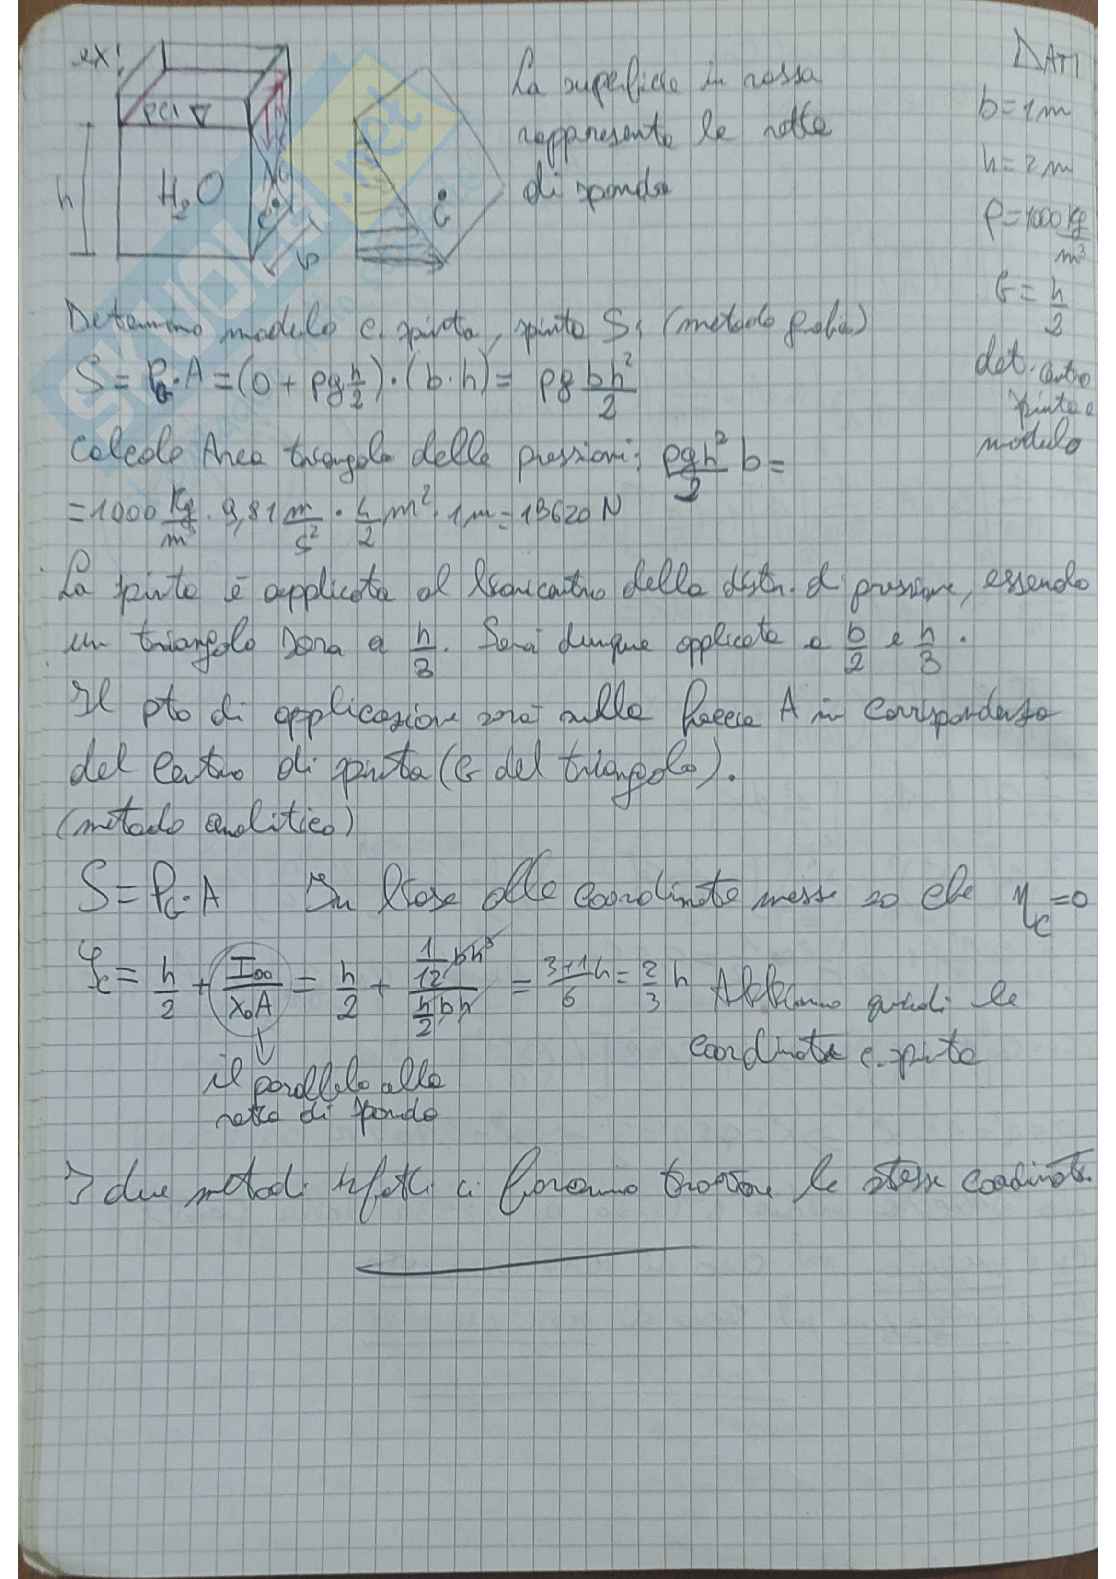 ex:
La superficie in rossa
rappresenta la retta
di sponda
DATI
b=1m
h=2m
ρ=1000 Kg/m³
G=h/2
det. centro
spinta e
modulo
PCI ∇
H₂O
h
b
G
SKUOLA.net
Determino modulo c. spinta, spinta S: (metodo
S = P_G·A = (0 + ρg h/2)·(b·h) = ρg bh²/2
Calcolo Area triangolo delle pressioni: ρgh²/2 b=
=1000 Kg/m³ · 9,81 m/s² · 4/2 m² · 1m = 19620 N
La spinta è applicata al baricentro della distr. di pressione, essendo
un triangolo sarà a h/3. Sarà dunque applicata a b/2 e h/3.
Il pto di applicazione sarà sulla faccia A in corrispondenza
del centro di spinta (G del triangolo).
(metodo analitico)
S = P_G·A In base alle coordinate messe so che η_c=0
ξ_c = h/2 + I₀₀/X₀A = h/2 + (1/12 bh³)/(h/2 bh) = (3+1)/6 h = 2/3 h Abbiamo quindi le
coordinate c. spinta
il parallelo alla
retta di sponda
I due metodi infatti ci faranno trovare le stesse coordinate.